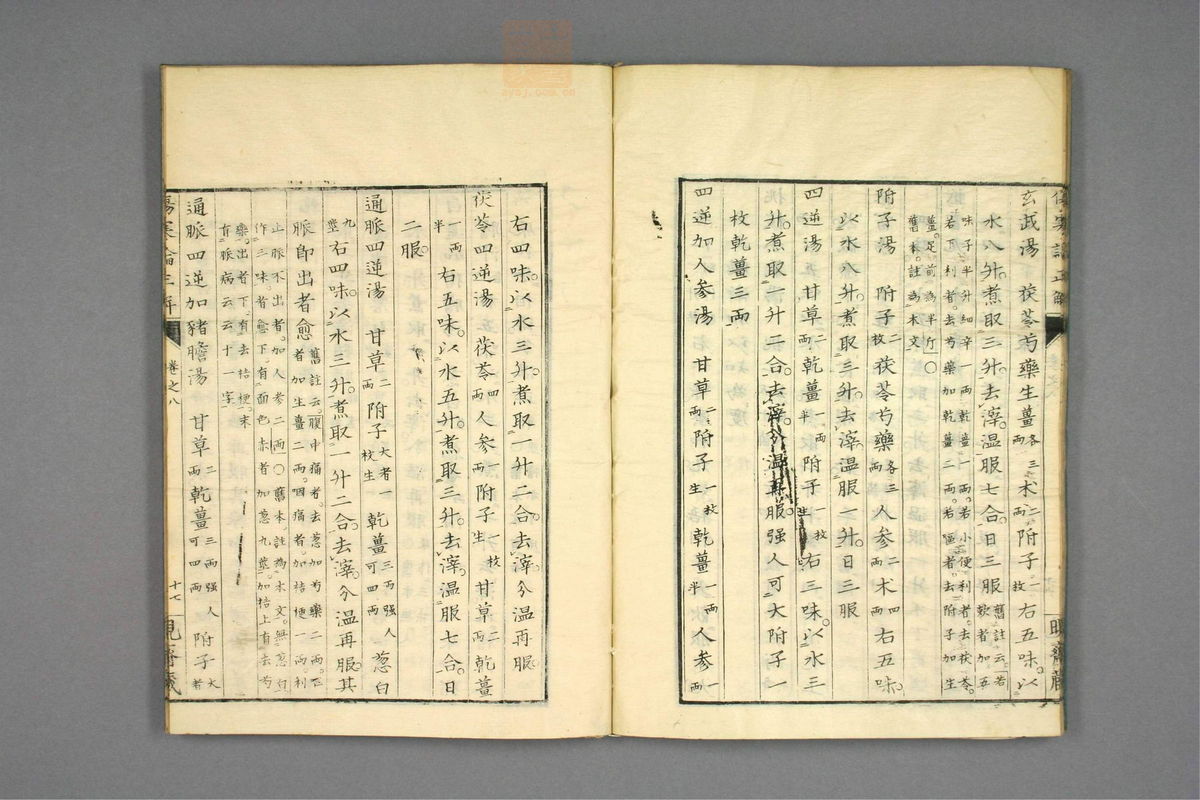 玄武湯　茯苓芍藥生薑各三兩　朮二兩附子一枚右五味以
水八升煮取三升去滓溫服七合日三服舊註云若欬者加五
味子半升細辛一兩乾薑一兩若小便利者去茯苓
若下利者去芍藥加乾薑二兩若嘔者去附子加生
薑足前爲半斤〇
舊本註爲本文
附子湯　附子二枚茯苓芍藥各三兩人參二兩朮四兩右五味
以水八升煮取三升去滓溫服一升日三服
四逆湯甘草二兩乾薑一兩半附子一枚生右三味以水三
升煮取一升二合去滓分溫再服强人可大附子一
枚乾薑三兩
四逆加人參湯　甘草二兩附子一枚生乾薑一兩半人參一兩
右四味以水三升煮取一升二合去滓分溫再服
茯苓四逆湯　茯苓四兩人參一兩附子一枚生甘草二兩乾薑
一兩半右五味以水五升煮取三升去滓溫服七合日
二服
通脈四逆湯　甘草二兩附子大者一枚生　乾薑三兩强人可四兩　葱白
九莖右四味以水三升煮取一升二合去滓分溫再服其
脈卽出者愈舊註云腹中痛者去葱加芍藥二兩
者加生薑二兩咽痛者加桔梗一兩利
止脈不出者加人參二兩〇舊本註爲本文無葱白
作三味者愈下有面色赤者加葱九莖
藥出者下有去桔梗末
有脈病云云十一字
通脈四逆加豬膽湯　甘草二兩乾薑三兩强人可四兩　附子大者
傷寒論正解
卷之八
十七